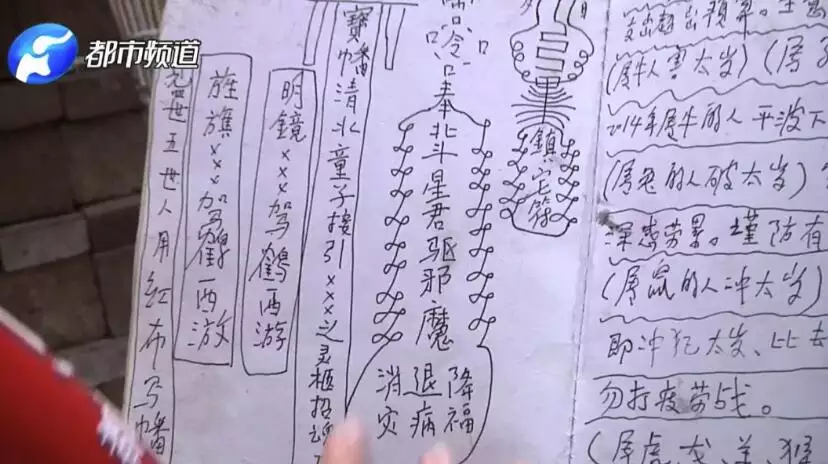 都市频道
五世人用红布写幡
旌旗×××驾鶴西游
明鏡×××驾鶴西游
寶幡清水童子接引×××之灵柩招魂
奉北斗星君驱邪魔
降福
退病
消灾
鎮宅符
支出超出预算。
(属牛人害太岁)(属
2014年属牛的人平波下
(属兔的人破太岁)
深感劳累。谨防有
(属鼠的人冲太岁)
即冲犯太岁、比去
勿打疲劳战。
(属虎、龙、羊、猴